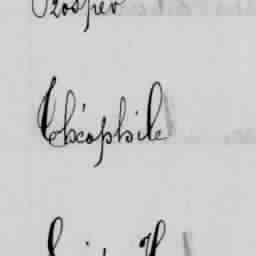 Prosper
Théophile